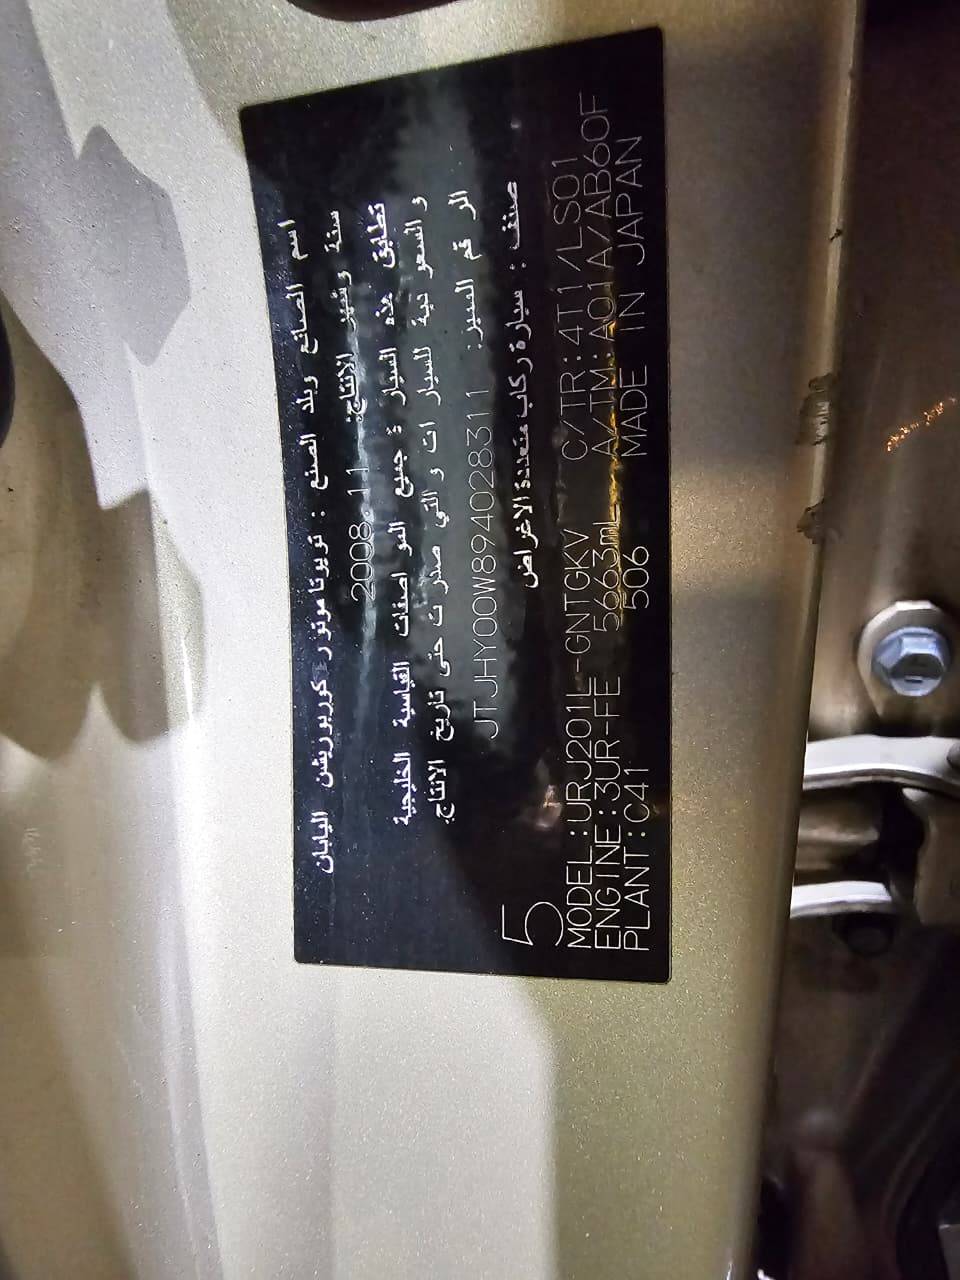 اسم الصانع وبلد الصنع : تويوتا موتور كوربوريشن اليابان
سنة وشهر الإنتاج: 2008.11
تطابق هذه السيارة جميع المواصفات القياسية الخليجية
والسعودية للسيارات والتي صدرت حتى تاريخ الانتاج.
الرقم المميز: JTJHY00W894028311
صنف : سيارة ركاب متعددة الاغراض
5
MODEL:URJ201L-GNTGKV C/TR:4T1/LS01
ENGINE:3UR-FE 5663mL A/TM:A01A/AB60F
PLANT:C41 506 MADE IN JAPAN